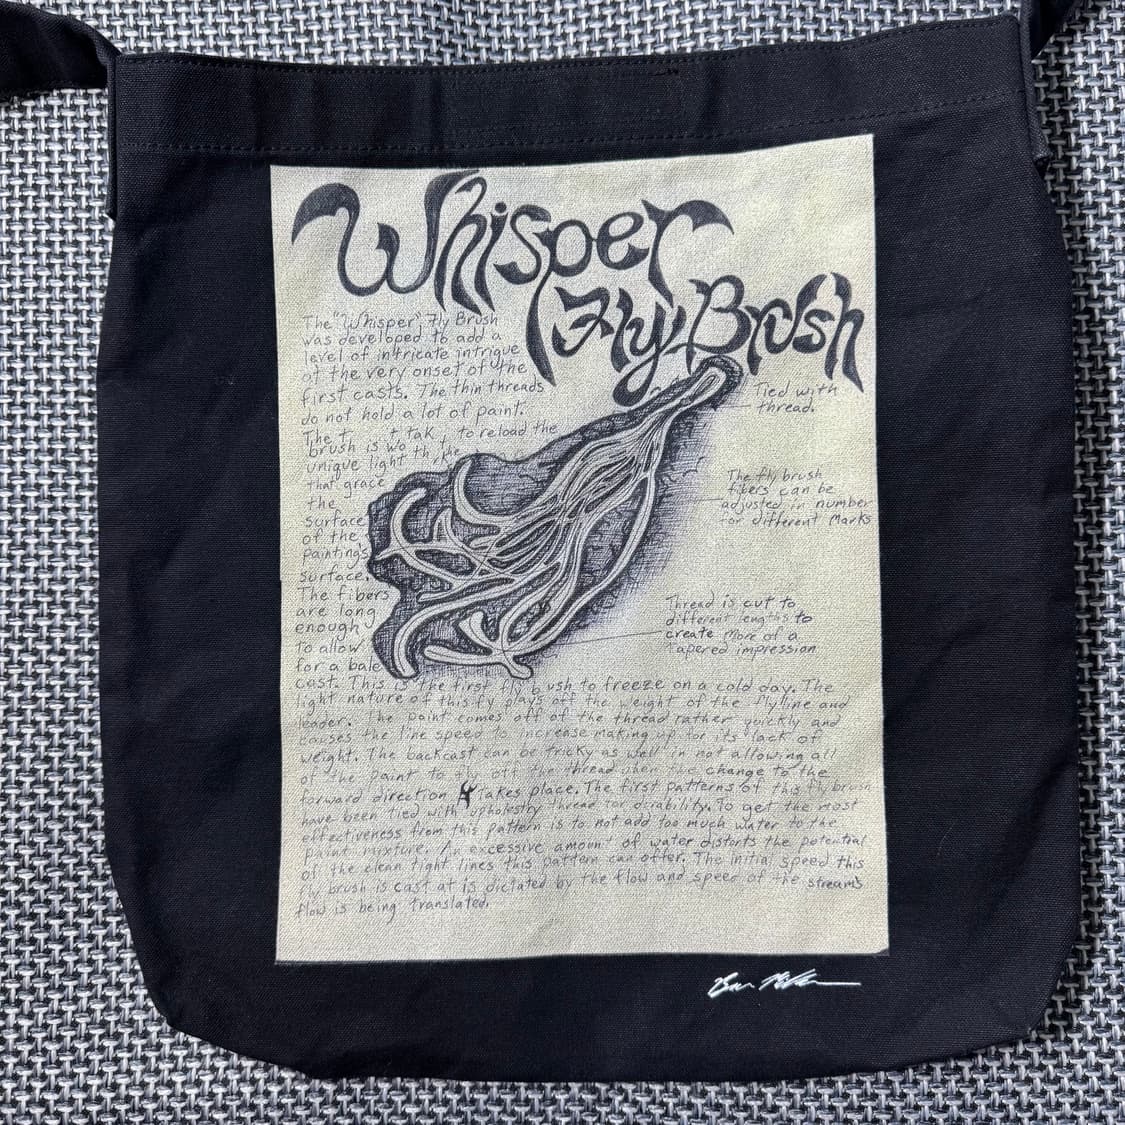 Whisper
Fly Brush
The "Whisper" Fly Brush
was developed to add a
level of intricate intrigue
at the very onset of the
first casts. The thin threads
do not hold a lot of paint.
The t tak to reload the
brush is wo th the
unique light
that grace
the
surface
of the
paintings
surface.
The fibers
are long
enough
to allow
for a bale
cast. This is the first fly b ush to freeze on a cold day. The
light nature of this fly plays off the weight of the flyline and
leader. The paint comes off of the thread rather quickly and
causes the line speed to increase making up for its lack of
weight. The backcast can be tricky as well in not allowing all
of the paint to fly off the thread when the change to the
forward direction takes place. The first patterns of this fly brush
have been tied with upholestry thread for durability. To get the most
effectiveness from this pattern is to not add too much water to the
paint mixture. An excessive amount of water distorts the potential
of the clean tight lines this pattern can offer. The initial speed this
fly brush is cast at is dictated by the flow and speed of the streams
flow is being translated.
Tied with
thread.
The fly brush
fibers can be
adjusted in number
for different Marks
Thread is cut to
different lengths to
create more of a
Tapered impression